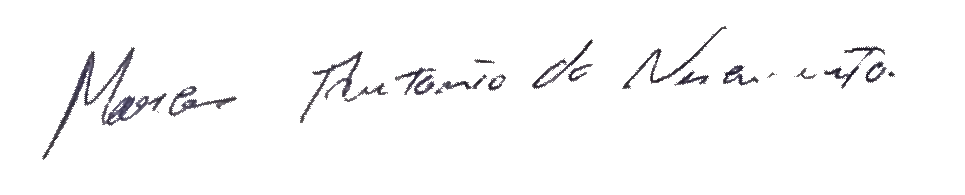 Marcos Antonio do Nascimento